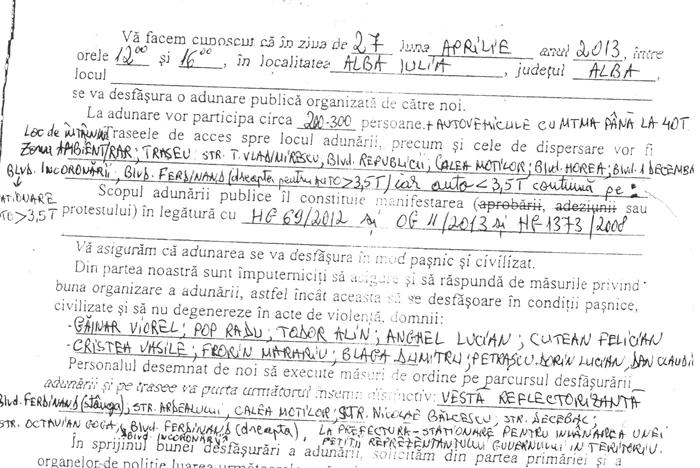 Vă facem cunoscut că în ziua de 27 luna APRILIE anul 2013, între
orele 12⁰⁰ și 16⁰⁰, în localitatea ALBA IULIA, județul ALBA,
locul
se va desfășura o adunare publică organizată de către noi.
La adunare vor participa circa 200-300 persoane. + AUTOVEHICULE CU MTMA PÂNĂ LA 40T.
Loc de întâlnire Traseele de acces spre locul adunării, precum și cele de dispersare vor fi
Zona AMBIENT/RAR; TRASEU: STR. T. VLADIMIRESCU, Blvd. REPUBLICII, CALEA MOȚILOR; Blvd. HOREA; Blvd. 1 DECEMBR
BLVD. INCORONĂRII, Blvd. FERDINAND (dreapta pentru AUTO > 3,5T) iar auto < 3,5T continuă pe:
Scopul adunării publice îl constituie manifestarea (aprobării, adeziunii sau
STAȚIONARE
AUTO > 3,5T protestului) în legătură cu HG 69/2012 și OG 11/2013 și HG 1373/2008
Vă asigurăm că adunarea se va desfășura în mod pașnic și civilizat.
Din partea noastră sunt împuterniciți să asigure și să răspundă de măsurile privind
buna organizare a adunării, astfel încât aceasta să se desfășoare în condiții pașnice,
civilizate și să nu degenereze în acte de violență, domnii:
- GĂINAR VIOREL; POP RADU; TODOR ALIN; ANGHEL LUCIAN; CUTEAN FELICIAN
- CRISTEA VASILE; FRORIN MARARIU; BLAGA DUMITRU; PETRAȘCU DORIN LUCIAN, DAN CLAUDI
Personalul desemnat de noi să execute măsuri de ordine pe parcursul desfășurării
adunării și pe trasee va purta următorul însemn distinctiv: VESTA REFLECTORIZANTA
Blvd. FERDINAND (stânga), STR. ARDEALULUI, CALEA MOȚILOR, STR. NICOLAE BĂLCESCU; STR. DECEBAL;
STR. OCTAVIAN GOGA, Blvd. FERDINAND (dreapta), LA PREFECTURA - STAȚIONARE PENTRU INMÂNAREA UNEI
Blvd INCORONĂRII PETIȚII REPREZENTANTULUI GUVERNULUI IN TERITORIU.
În sprijinul bunei desfășurări a adunării, solicităm din partea primăriei și a
organelor de poliție luarea următoarelor